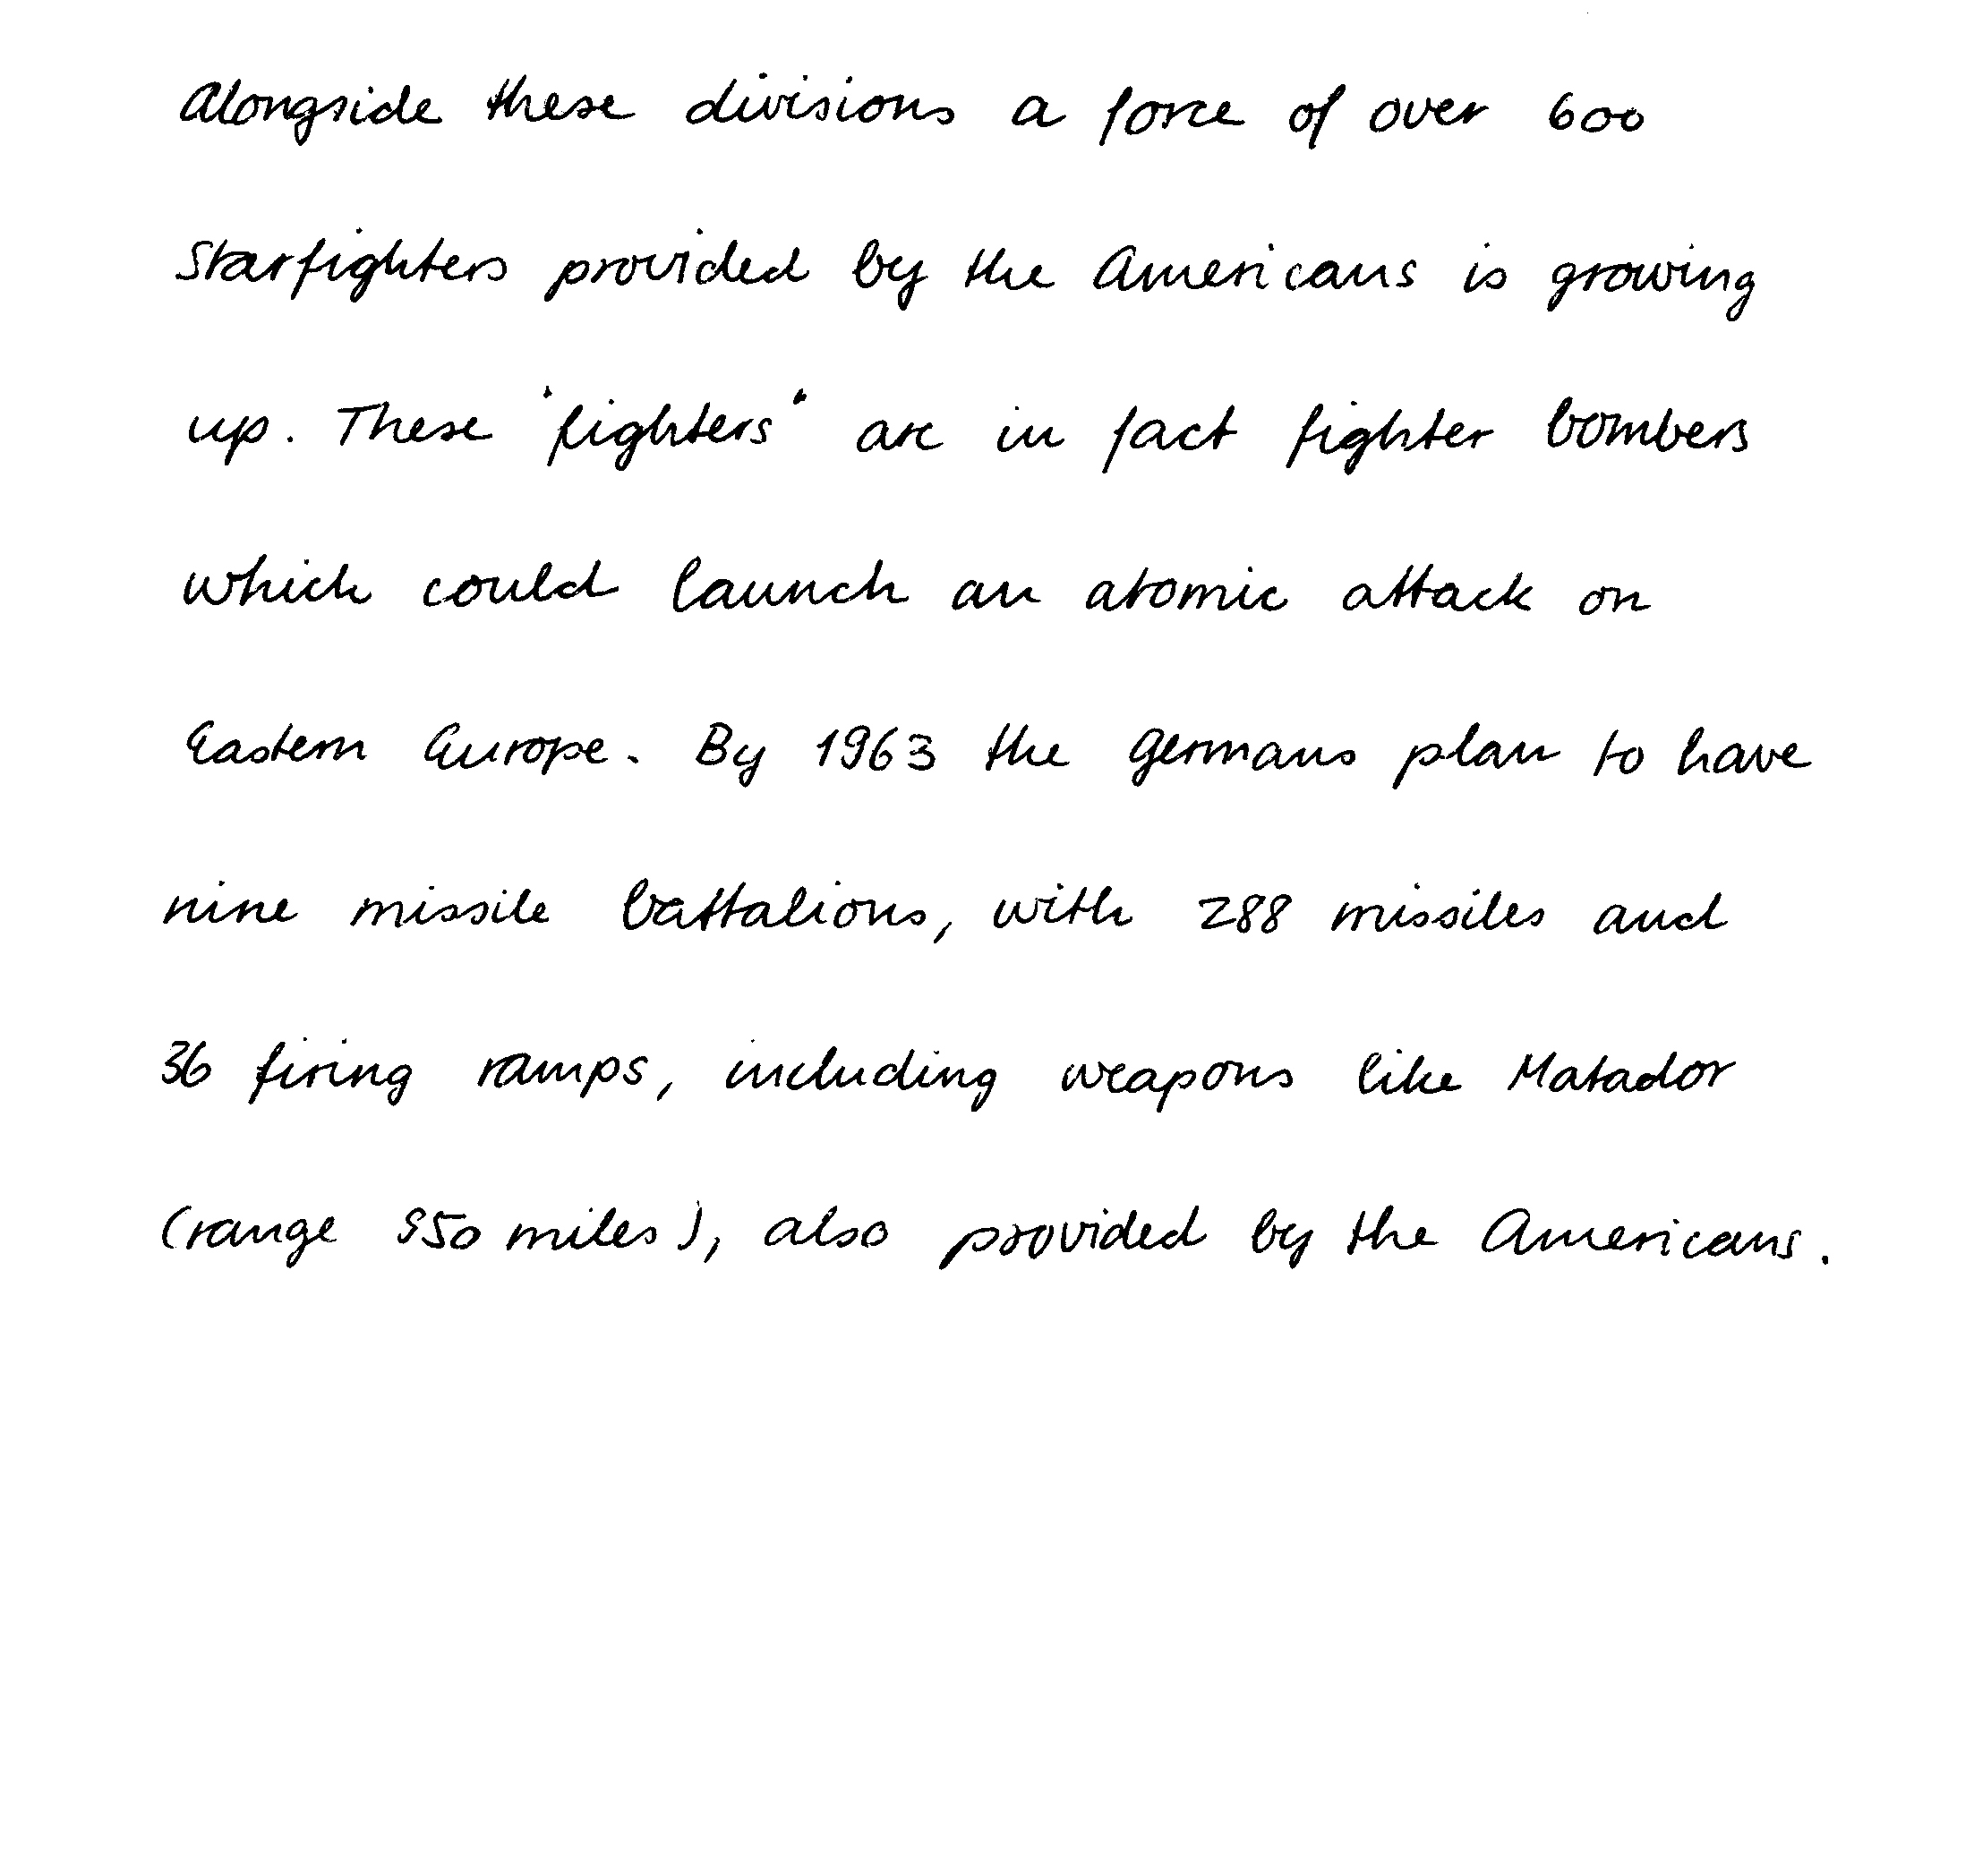 Alongside these divisions a force of over 600
Starfighters provided by the Americans is growing
up. These "fighters" are in fact fighter bombers
which could launch an atomic attack on
Eastern Europe. By 1963 the Germans plan to have
nine missile battalions, with 288 missiles and
36 firing ramps, including weapons like Matador
(range 950 miles), also provided by the Americans.